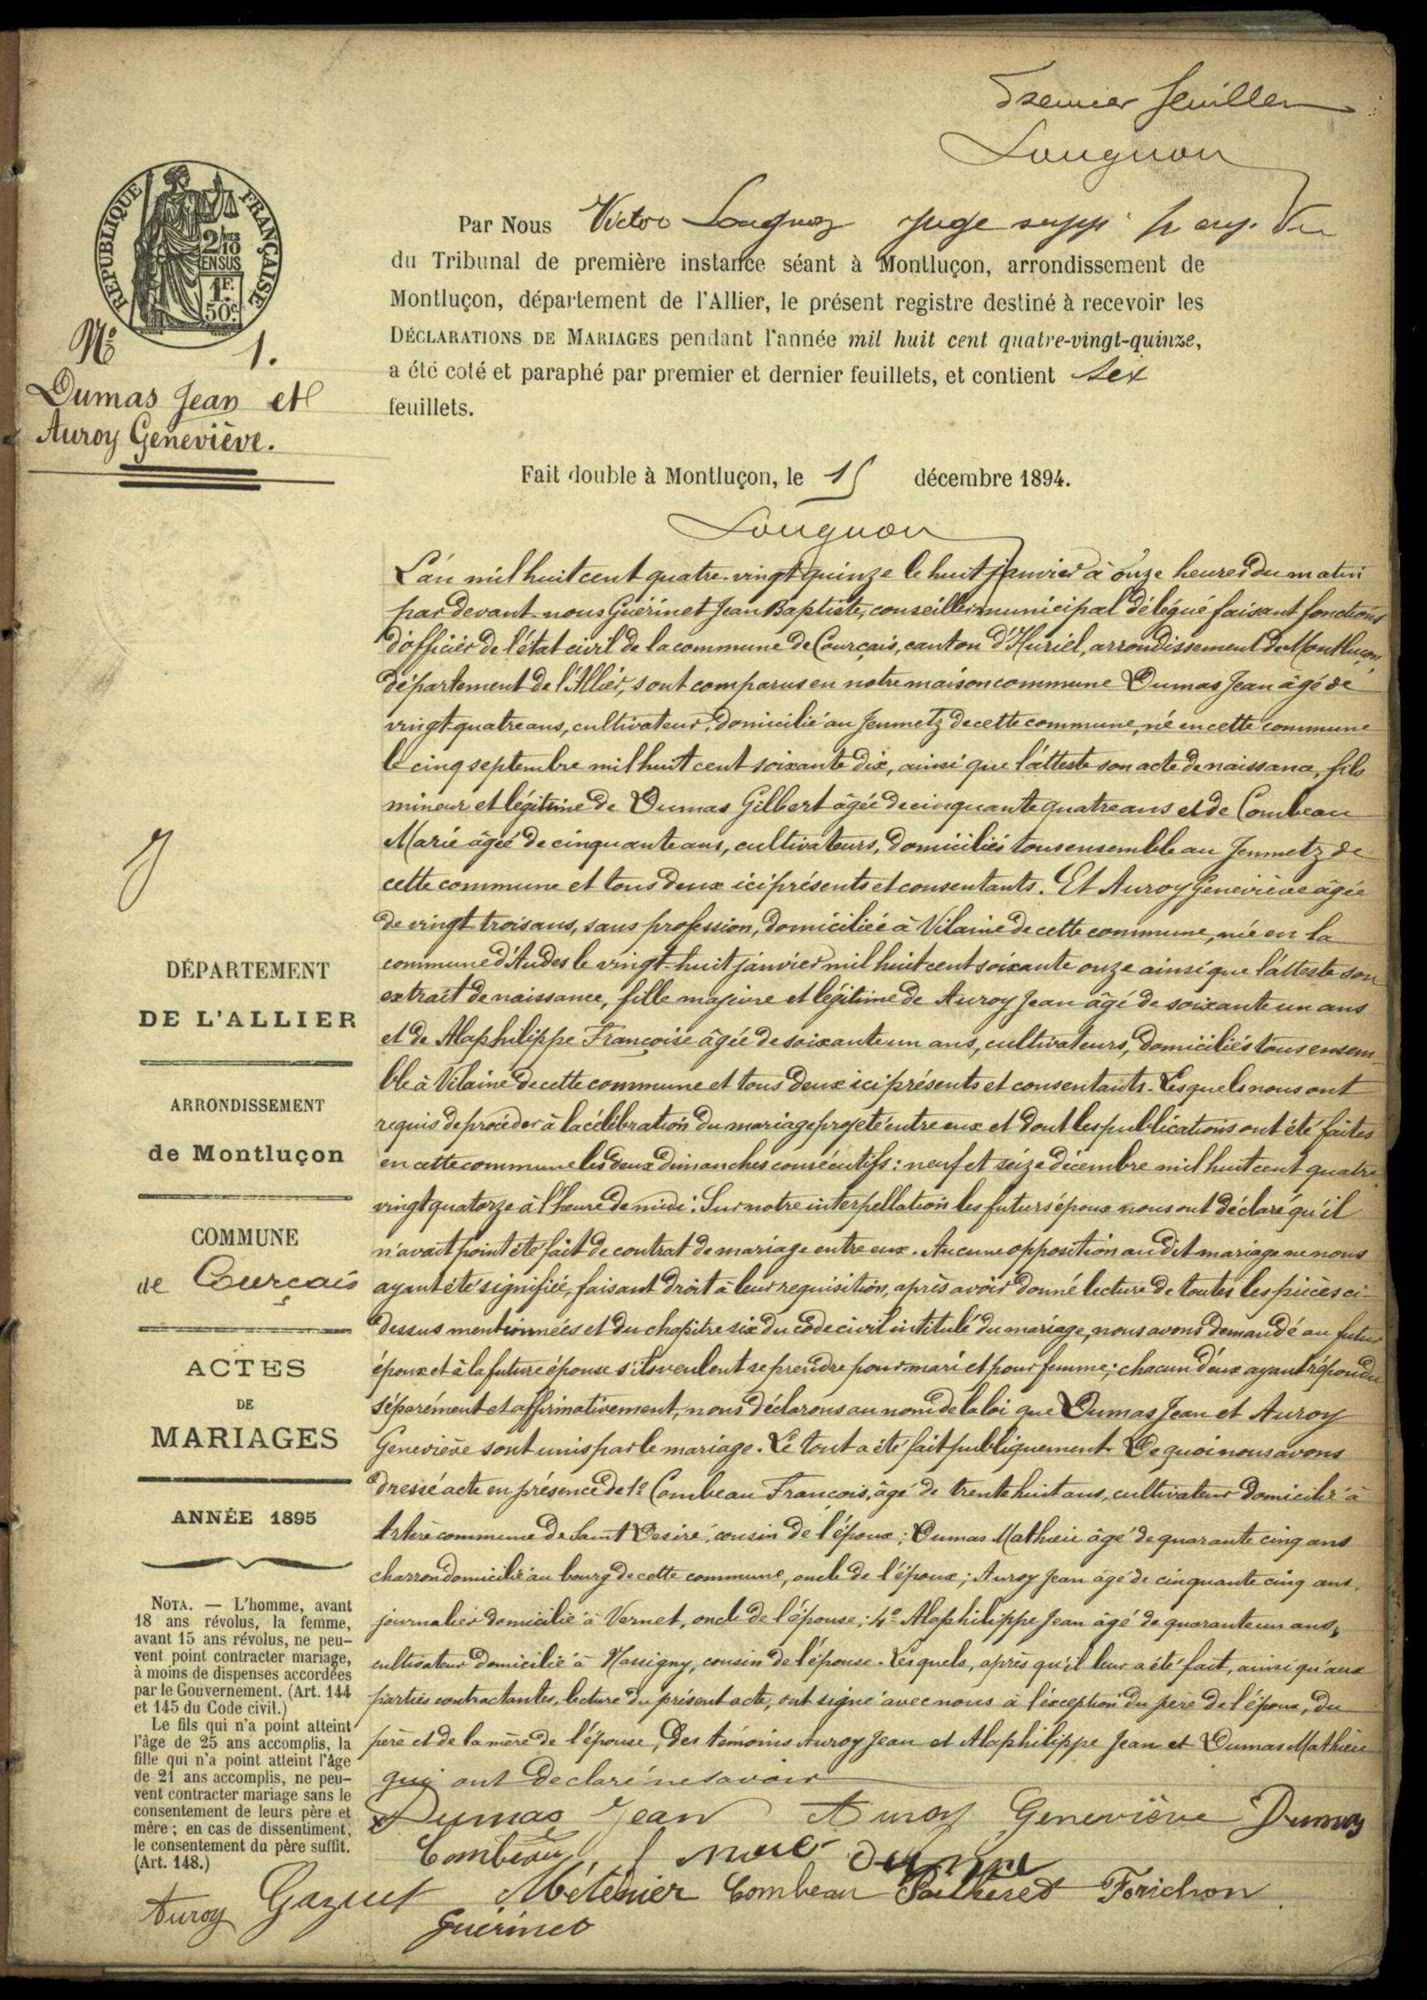 Premier feuillet
Lougnon
RÉPUBLIQUE FRANÇAISE
2/10
EN SUS
1F.
50c
Par Nous Victor Lougnon juge supp.
du Tribunal de première instance séant à Montluçon, arrondissement de
Montluçon, département de l'Allier, le présent registre destiné à recevoir les
DÉCLARATIONS DE MARIAGES pendant l'année mil huit cent quatre-vingt-quinze,
a été coté et paraphé par premier et dernier feuillets, et contient six
feuillets.
Fait double à Montluçon, le 15 décembre 1894.
Lougnon
No 1.
Dumas Jean et
Auroy Geneviève.
L'an mil huit cent quatre-vingt quinze le huit janvier à onze heures du matin
par devant nous Guérinet Jean Baptiste, conseiller municipal délégué faisant fonctions
d'officier de l'état civil de la commune de Courçais, canton d'Huriel, arrondissement de Montluçon
département de l'Allier, sont comparus en notre maison commune Dumas Jean âgé de
vingt quatre ans, cultivateur, domicilié au Jenmetz de cette commune, né en cette commune
le cinq septembre mil huit cent soixante dix, ainsi que l'atteste son acte de naissance, fils
mineur et légitime de Dumas Gilbert âgée de cinquante quatre ans et de Combeau
Marie âgée de cinquante ans, cultivateurs, domiciliés tous ensemble au Jenmetz de
cette commune et tous deux ici présents et consentants. Et Auroy Geneviève âgée
de vingt trois ans, sans profession, domiciliée à Vilaine de cette commune, née en la
commune d'Audes le vingt-huit janvier mil huit cent soixante onze ainsi que l'atteste son
extrait de naissance, fille majeure et légitime de Auroy Jean âgé de soixante un ans
et de Alaphilippe Françoise âgée de soixante un ans, cultivateurs, domiciliés tous ensem
ble à Vilaine de cette commune et tous deux ici présents et consentants. Lesquels nous ont
requis de procéder à la célébration du mariage projeté entre eux et dont les publications ont été faites
en cette commune les deux dimanches consécutifs : neuf et seize décembre mil huit cent quatre
vingt quatorze à l'heure de midi. Sur notre interpellation les futurs époux nous ont déclaré qu'il
n'avait point été fait de contrat de mariage entre eux. Aucune opposition au dit mariage ne nous
ayant été signifiée, faisant droit à leur requisition, après avoir donné lecture de toutes les pièces ci
dessus mentionnées et du chapitre six du code civil intitulé du mariage, nous avons demandé au futur
époux et à la future épouse s'ils veulent se prendre pour mari et pour femme; chacun d'eux ayant répondu
séparément et affirmativement, nous déclarons au nom de la loi que Dumas Jean et Auroy
Geneviève sont unis par le mariage. Le tout a été fait publiquement. De quoi nous avons
dressé acte en présence de 1o Combeau François, âgé de trente huit ans, cultivateur domicilié à
commune de Saint Désiré, cousin de l'époux; Dumas Mathieu âgé de quarante cinq ans
charron domicilié au bourg de cette commune, oncle de l'époux; Auroy Jean âgé de cinquante cinq ans,
journalier domicilié à Vernet, oncle de l'épouse; 4o Alaphilippe Jean âgé de quarante un ans,
cultivateur domicilié à Nassigny, cousin de l'épouse. Lesquels, après qu'il leur a été fait, ainsi qu'aux
parties contractantes, lecture du présent acte, ont signé avec nous à l'exception du père de l'époux, du
père et de la mère de l'épouse, des témoins Auroy Jean et Alaphilippe Jean et Dumas Mathieu
qui ont déclaré ne savoir
Dumas Jean Auroy Geneviève Dumas
Combeau
Auroy Gazuet Méténier Combeau Forichon
Guérinet
DÉPARTEMENT
DE L'ALLIER
ARRONDISSEMENT
de Montluçon
COMMUNE
de Courçais
ACTES
DE
MARIAGES
ANNÉE 1895
NOTA. — L'homme, avant
18 ans révolus, la femme,
avant 15 ans révolus, ne peu-
vent point contracter mariage,
à moins de dispenses accordées
par le Gouvernement. (Art. 144
et 145 du Code civil.)
Le fils qui n'a point atteint
l'âge de 25 ans accomplis, la
fille qui n'a point atteint l'âge
de 21 ans accomplis, ne peu-
vent contracter mariage sans le
consentement de leurs père et
mère ; en cas de dissentiment,
le consentement du père suffit.
(Art. 148.)